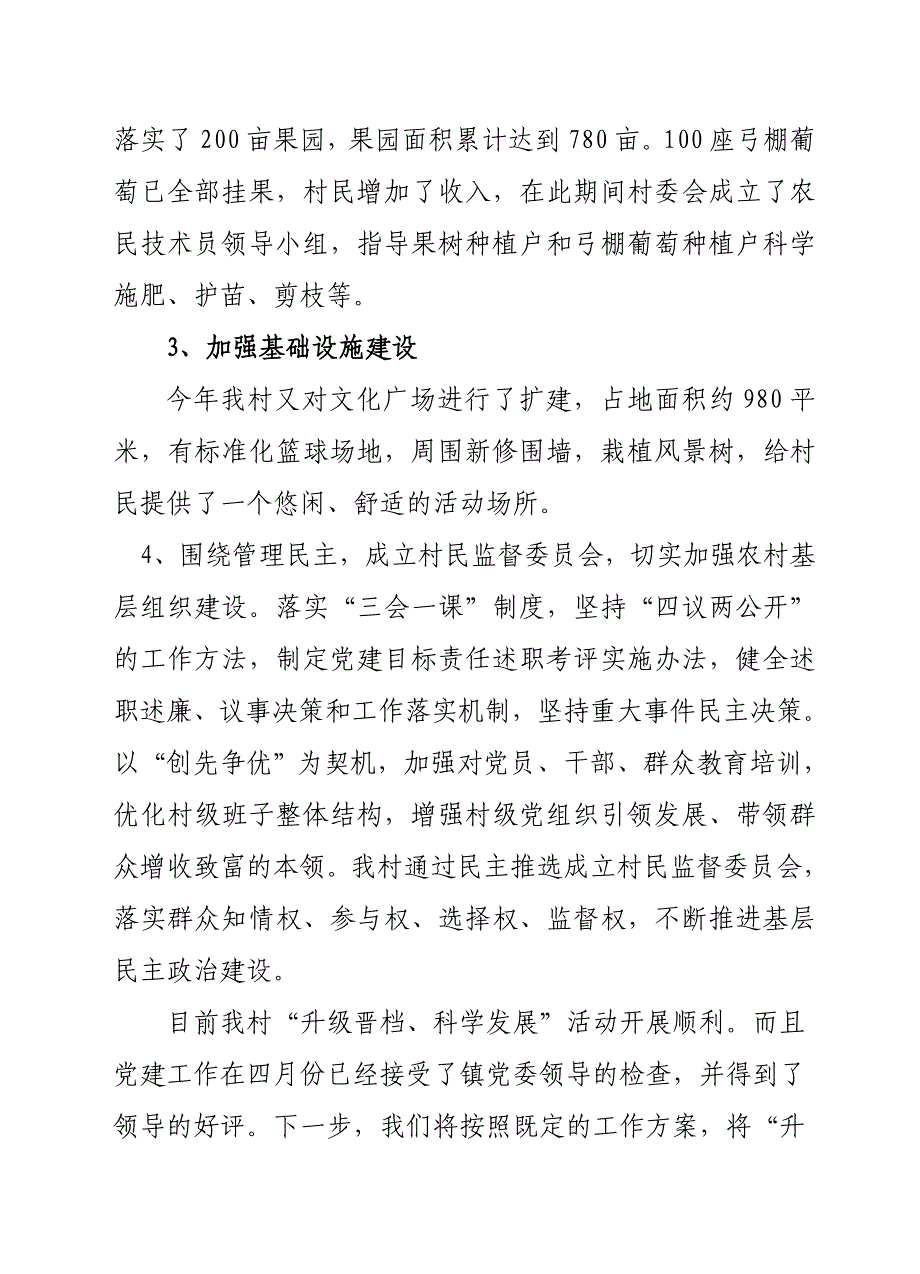 落实了 200 亩果园，果园面积累计达到 780 亩。100 座弓棚葡
萄已全部挂果，村民增加了收入，在此期间村委会成立了农
民技术员领导小组，指导果树种植户和弓棚葡萄种植户科学
施肥、护苗、剪枝等。
3、加强基础设施建设
今年我村又对文化广场进行了扩建，占地面积约 980 平
米，有标准化篮球场地，周围新修围墙，栽植风景树，给村
民提供了一个悠闲、舒适的活动场所。
4、围绕管理民主，成立村民监督委员会，切实加强农村基
层组织建设。落实“三会一课”制度，坚持“四议两公开”
的工作方法，制定党建目标责任述职考评实施办法，健全述
职述廉、议事决策和工作落实机制，坚持重大事件民主决策。
以“创先争优”为契机，加强对党员、干部、群众教育培训，
优化村级班子整体结构，增强村级党组织引领发展、带领群
众增收致富的本领。我村通过民主推选成立村民监督委员会，
落实群众知情权、参与权、选择权、监督权，不断推进基层
民主政治建设。
目前我村“升级晋档、科学发展”活动开展顺利。而且
党建工作在四月份已经接受了镇党委领导的检查，并得到了
领导的好评。下一步，我们将按照既定的工作方案，将“升